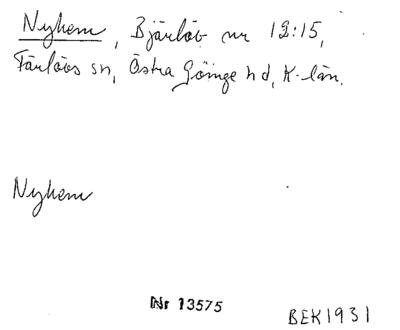 Nyhem, Bjärlöv nr 12:15,
Färlövs sn, Östra Göinge hd, K-län.
Nyhem
Nr 13575
BEK1931